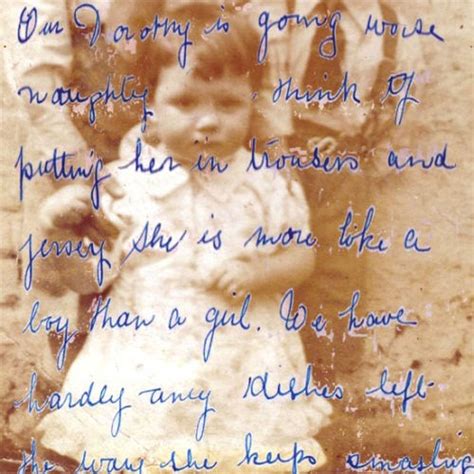 Our Dorothy is going worse
naughty think of
putting her in trousers and
jersey she is more like a
boy than a girl. We have
hardly any dishes left
the way she keeps smashing